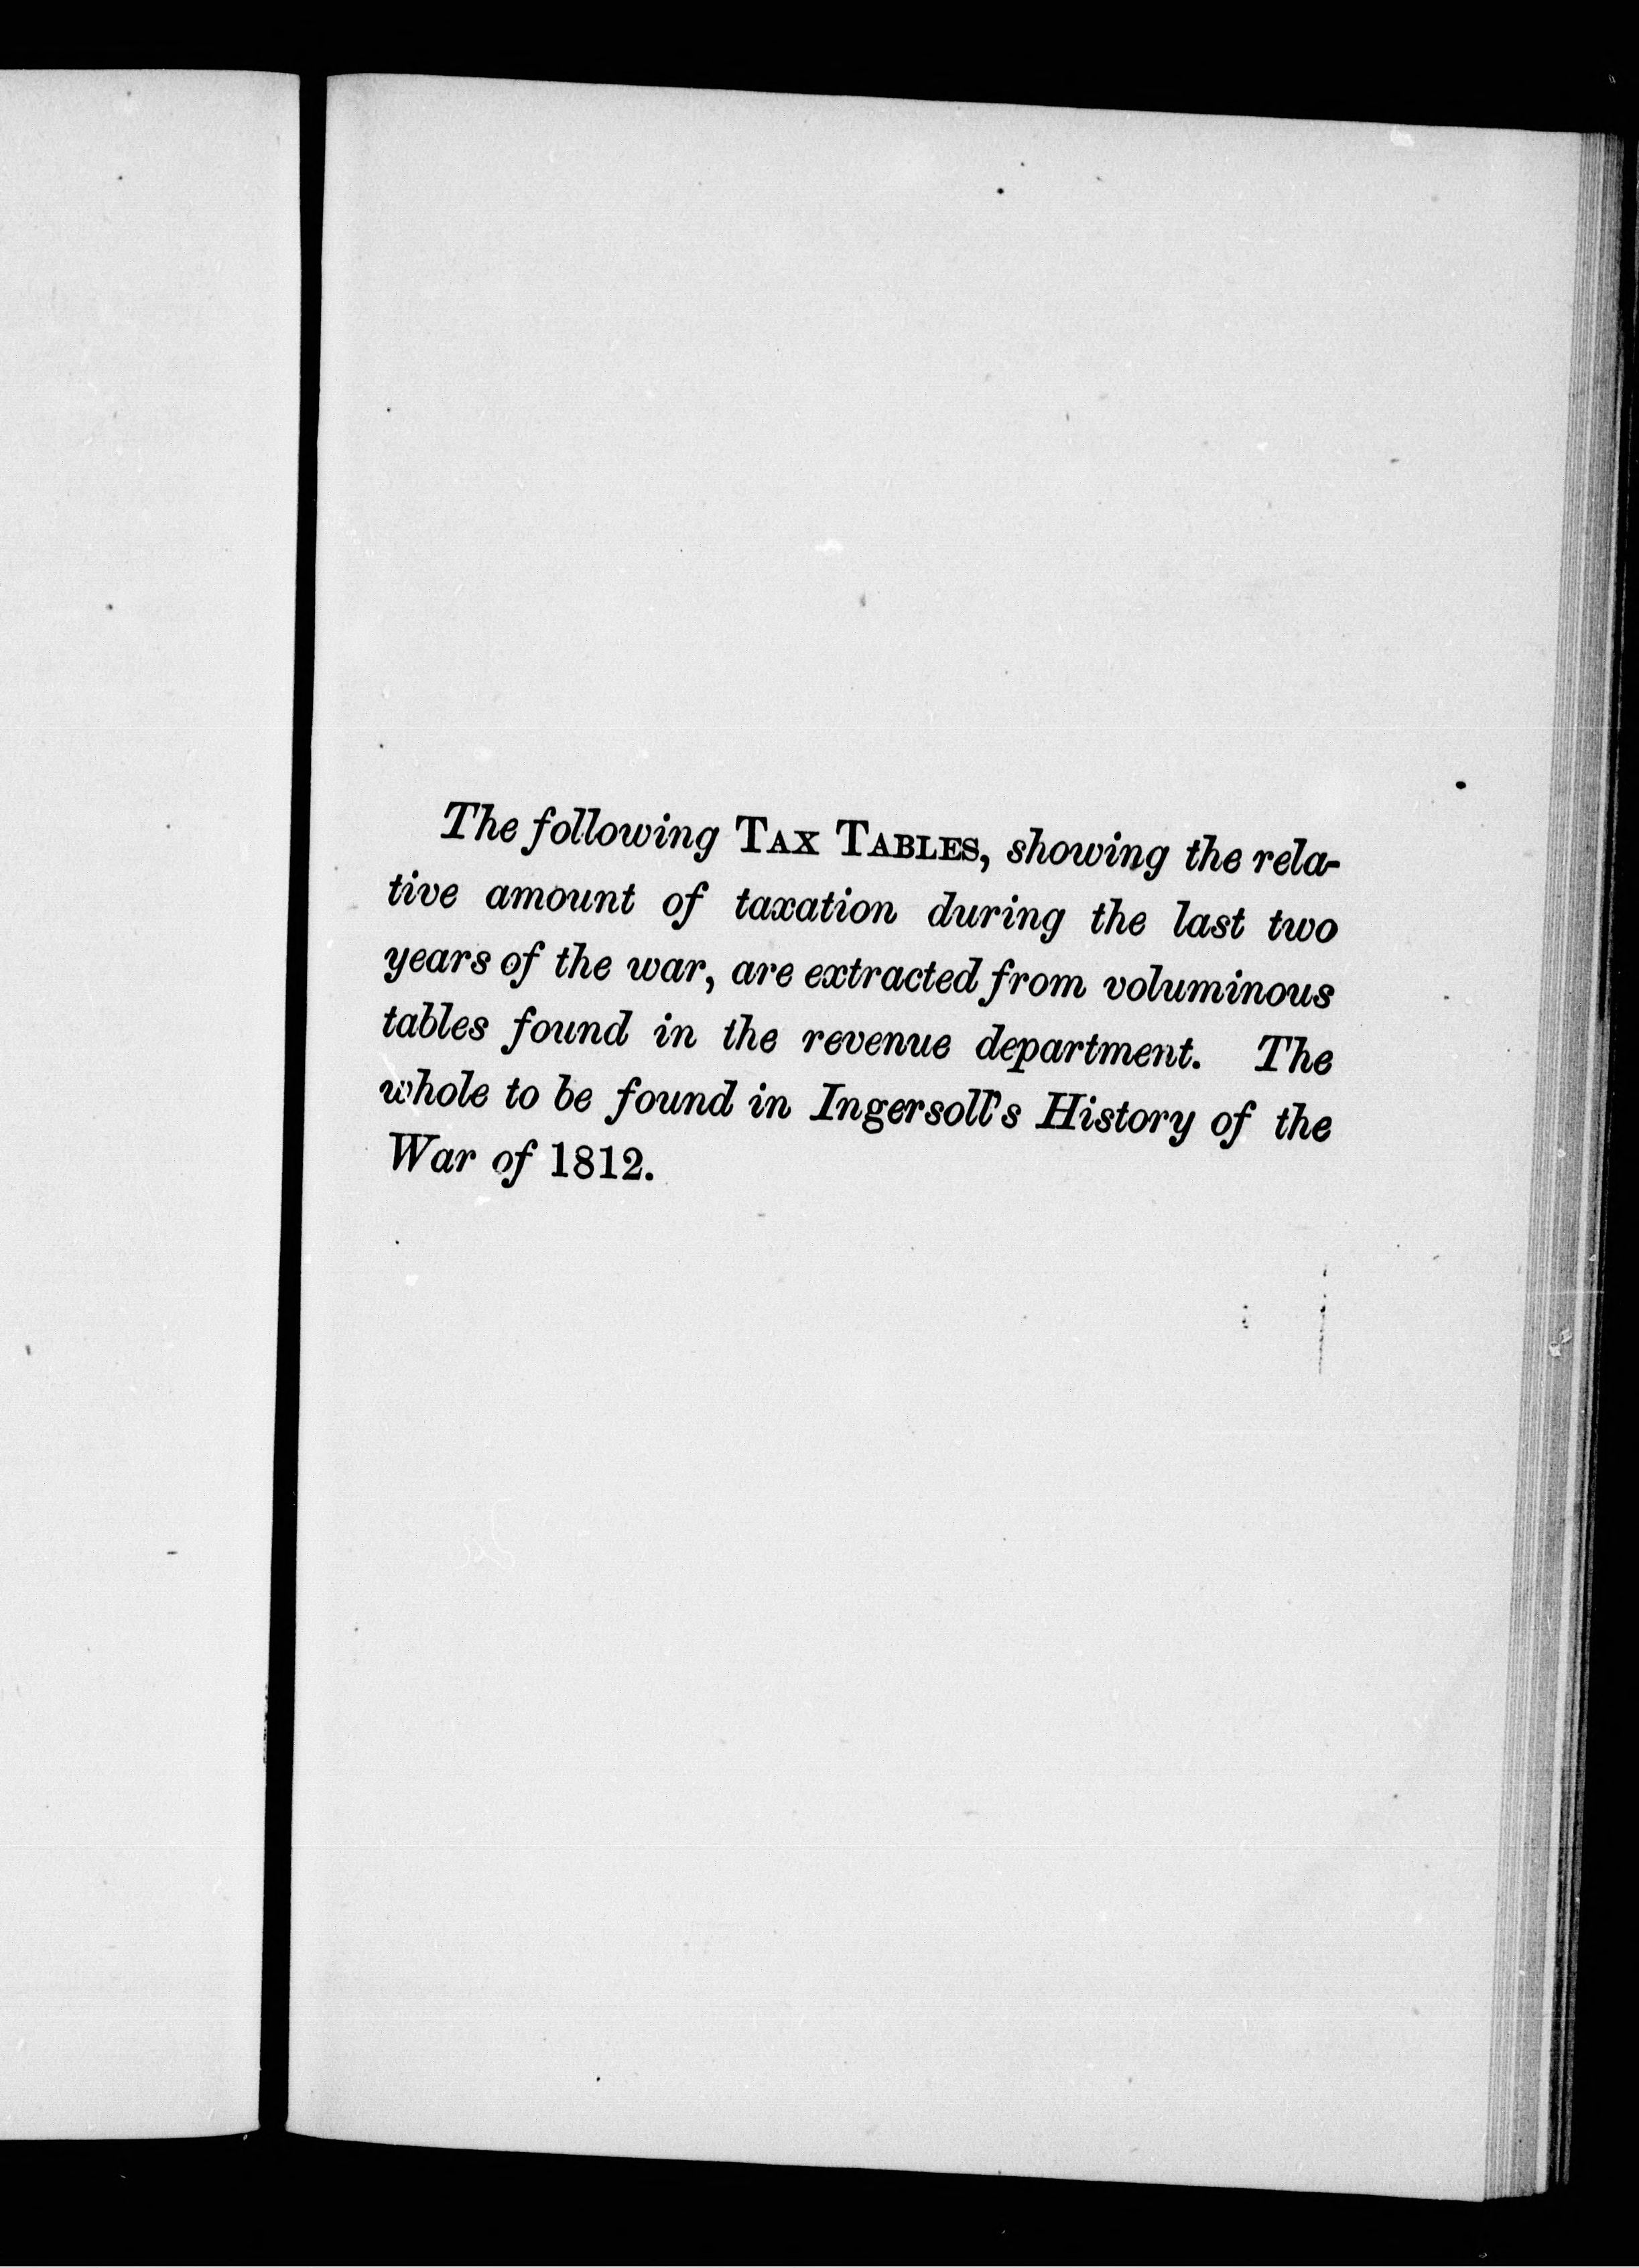 The following TAX TABLES, showing the rela-
tive amount of taxation during the last two
years of the war, are extracted from voluminous
tables found in the revenue department. The
whole to be found in Ingersoll's History of the
War of 1812.